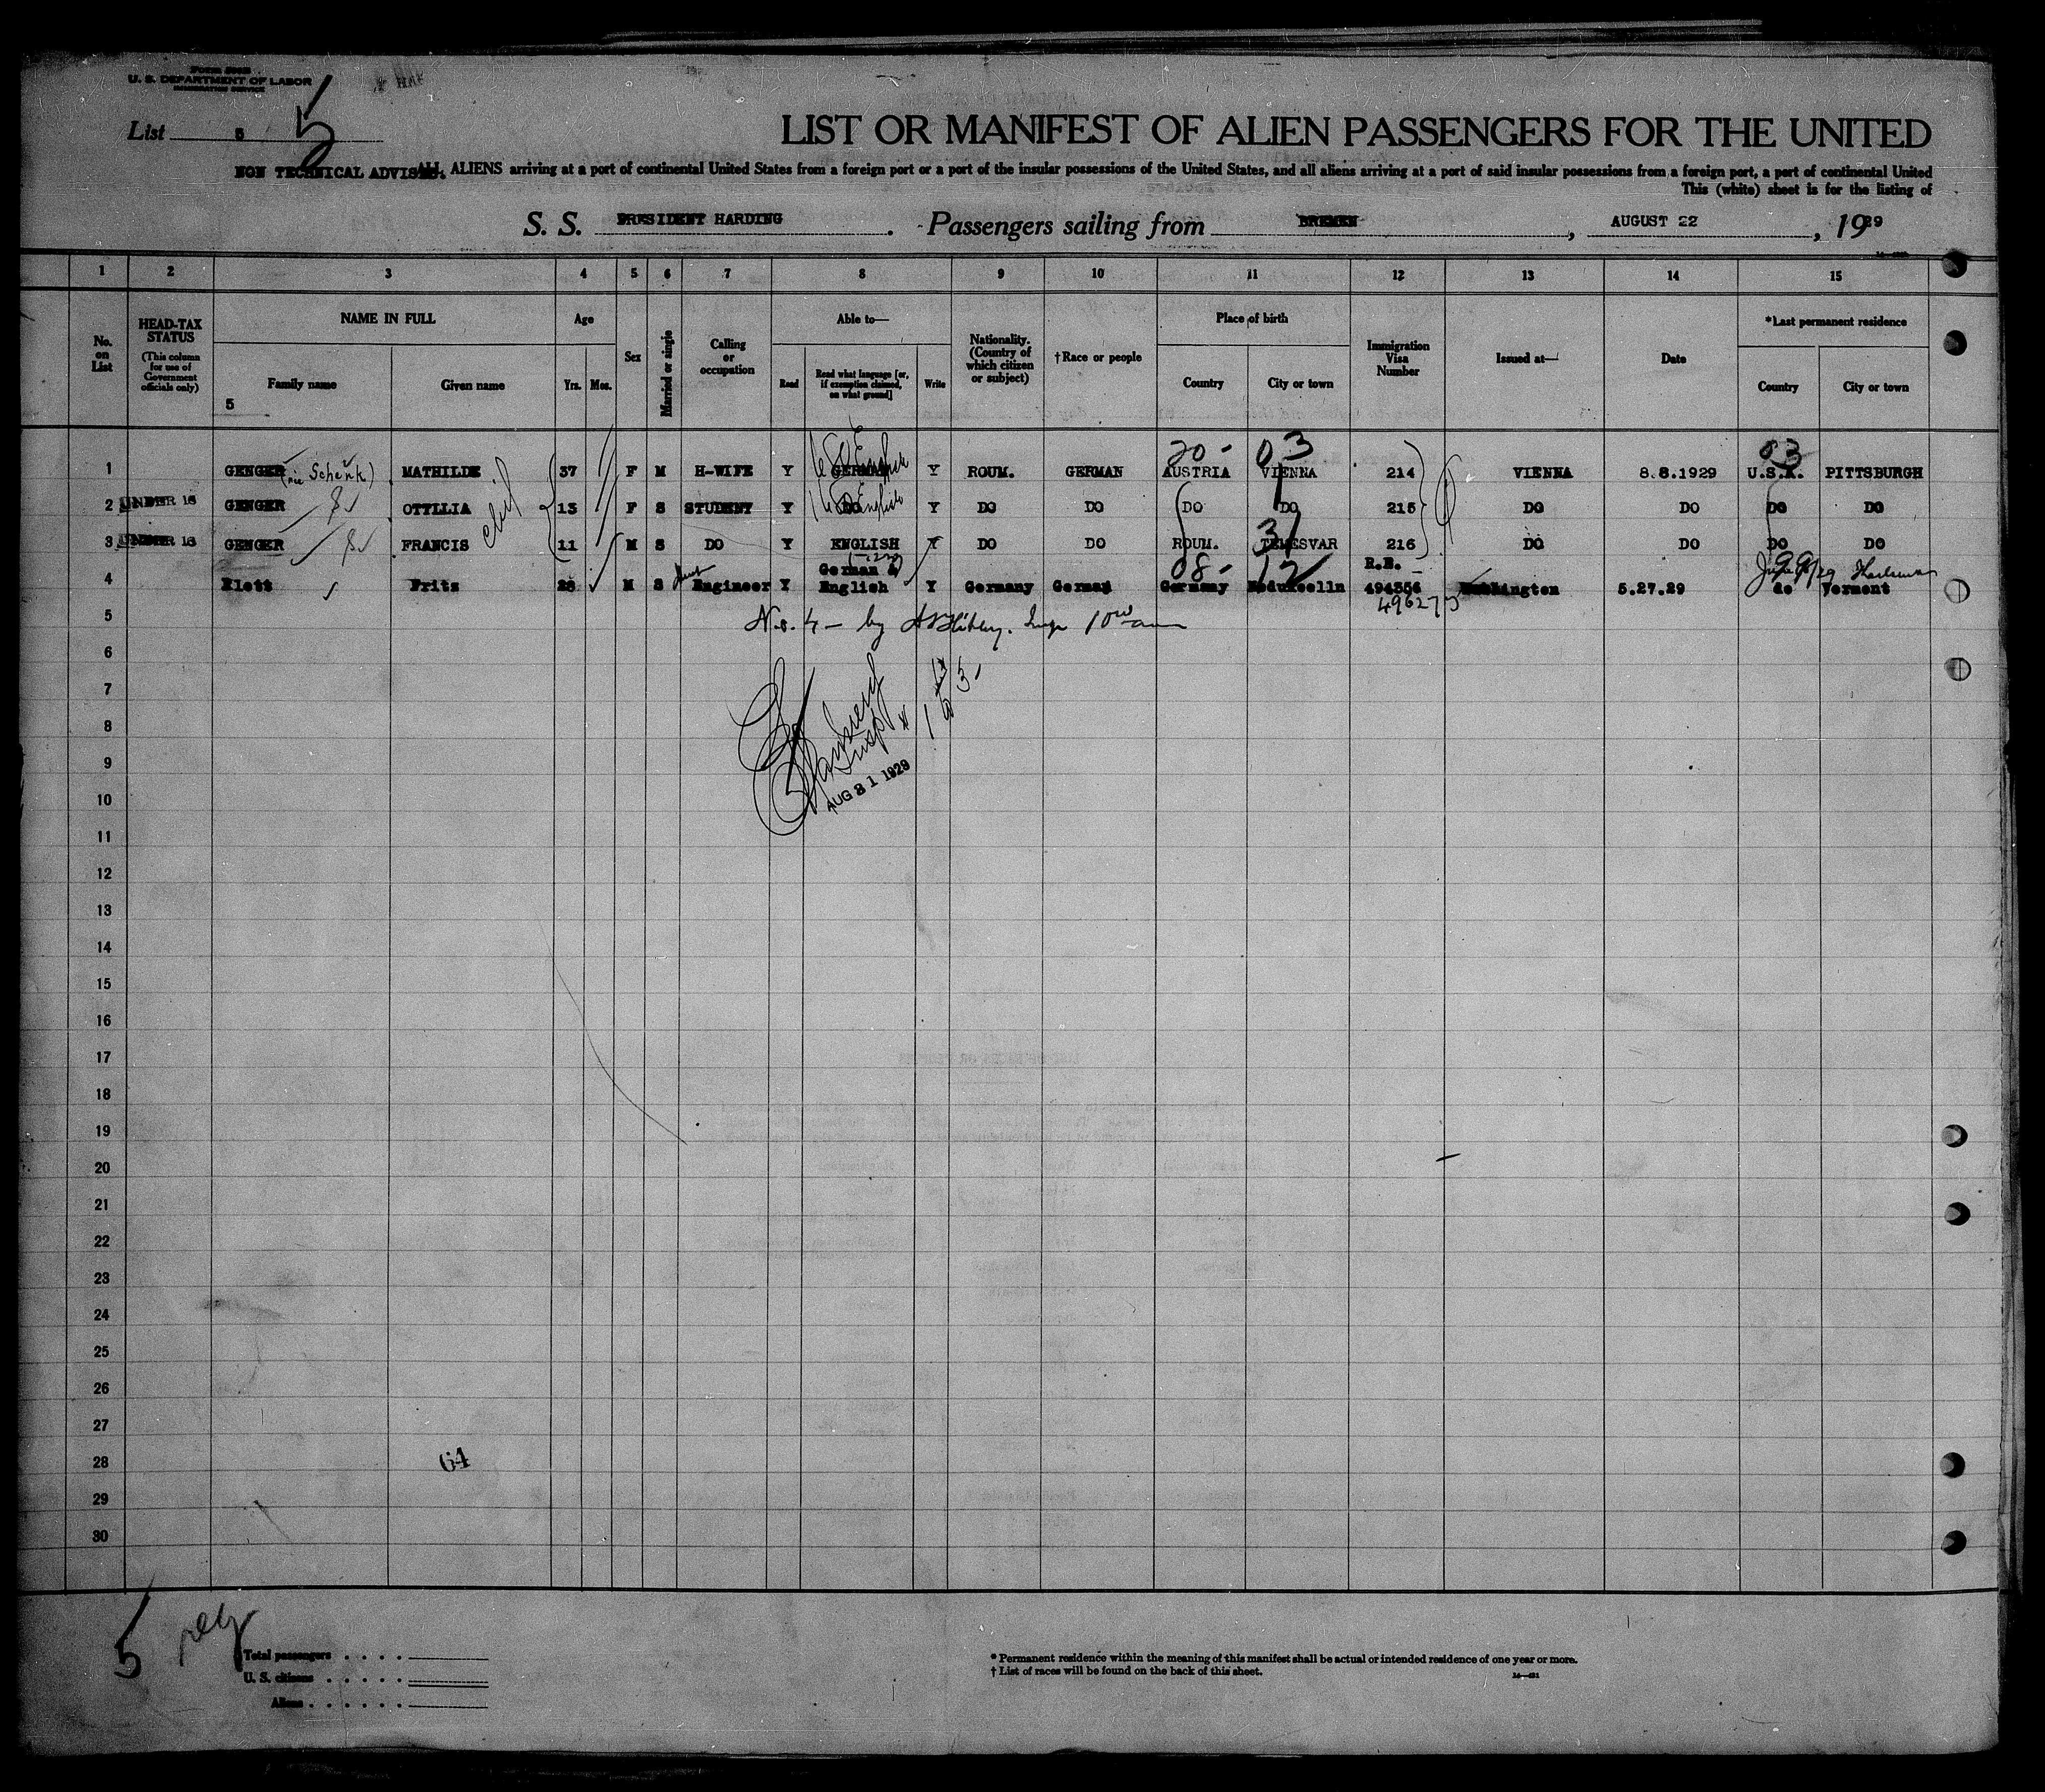 U. S. DEPARTMENT OF LABOR
IMMIGRATION SERVICE
List 5
5
LIST OR MANIFEST OF ALIEN PASSENGERS FOR THE UNITED
NON TECHNICAL ADVISER.
ALL ALIENS arriving at a port of continental United States from a foreign port or a port of the insular possessions of the United States, and all aliens arriving at a port of said insular possessions from a foreign port, a port of continental United
This (white) sheet is for the listing of
S. S. PRESIDENT HARDING . Passengers sailing from BREMEN , AUGUST 22 , 1929
1 2 3 4 5 6 7 8 9 10 11 12 13 14 15
No. on List
HEAD-TAX STATUS (This column for use of Government officials only)
NAME IN FULL Family name Given name
5
Age Yrs. Mos.
Sex
Married or single
Calling or occupation
Able to— Read Read what language [or, if exemption claimed, on what ground] Write
Nationality. (Country of which citizen or subject)
†Race or people
Place of birth Country City or town
Immigration Visa Number
Issued at—
Date
*Last permanent residence Country City or town
20- 03 03
1 GENGER (nee Schenk) MATHILDE 37 F M H-WIFE Y GERMAN English Y ROUM. GERMAN AUSTRIA VIENNA 214 VIENNA 8.8.1929 U.S.A. PITTSBURGH
2 UNDER 16 GENGER OTTLLIA 13 F S STUDENT Y DO English Y DO DO DO DO 215 DO DO DO DO
3 UNDER 16 GENGER FRANCIS 11 M S DO Y ENGLISH Y DO DO ROUM. TEMESVAR 216 DO DO DO DO
08- 12 R.E.
4 Klett Fritz 28 M S Engineer Y German & English Y Germany German Germany 494356 Washington 5.27.29 do Vermont
5 No. 4 - by
6
7
8
9
AUG 31 1929
10
11
12
13
14
15
16
17
18
19
20
21
22
23
24
25
26
27
28
64
29
30
5
Total passengers
U. S. citizens
Aliens
* Permanent residence within the meaning of this manifest shall be actual or intended residence of one year or more.
† List of races will be found on the back of this sheet.